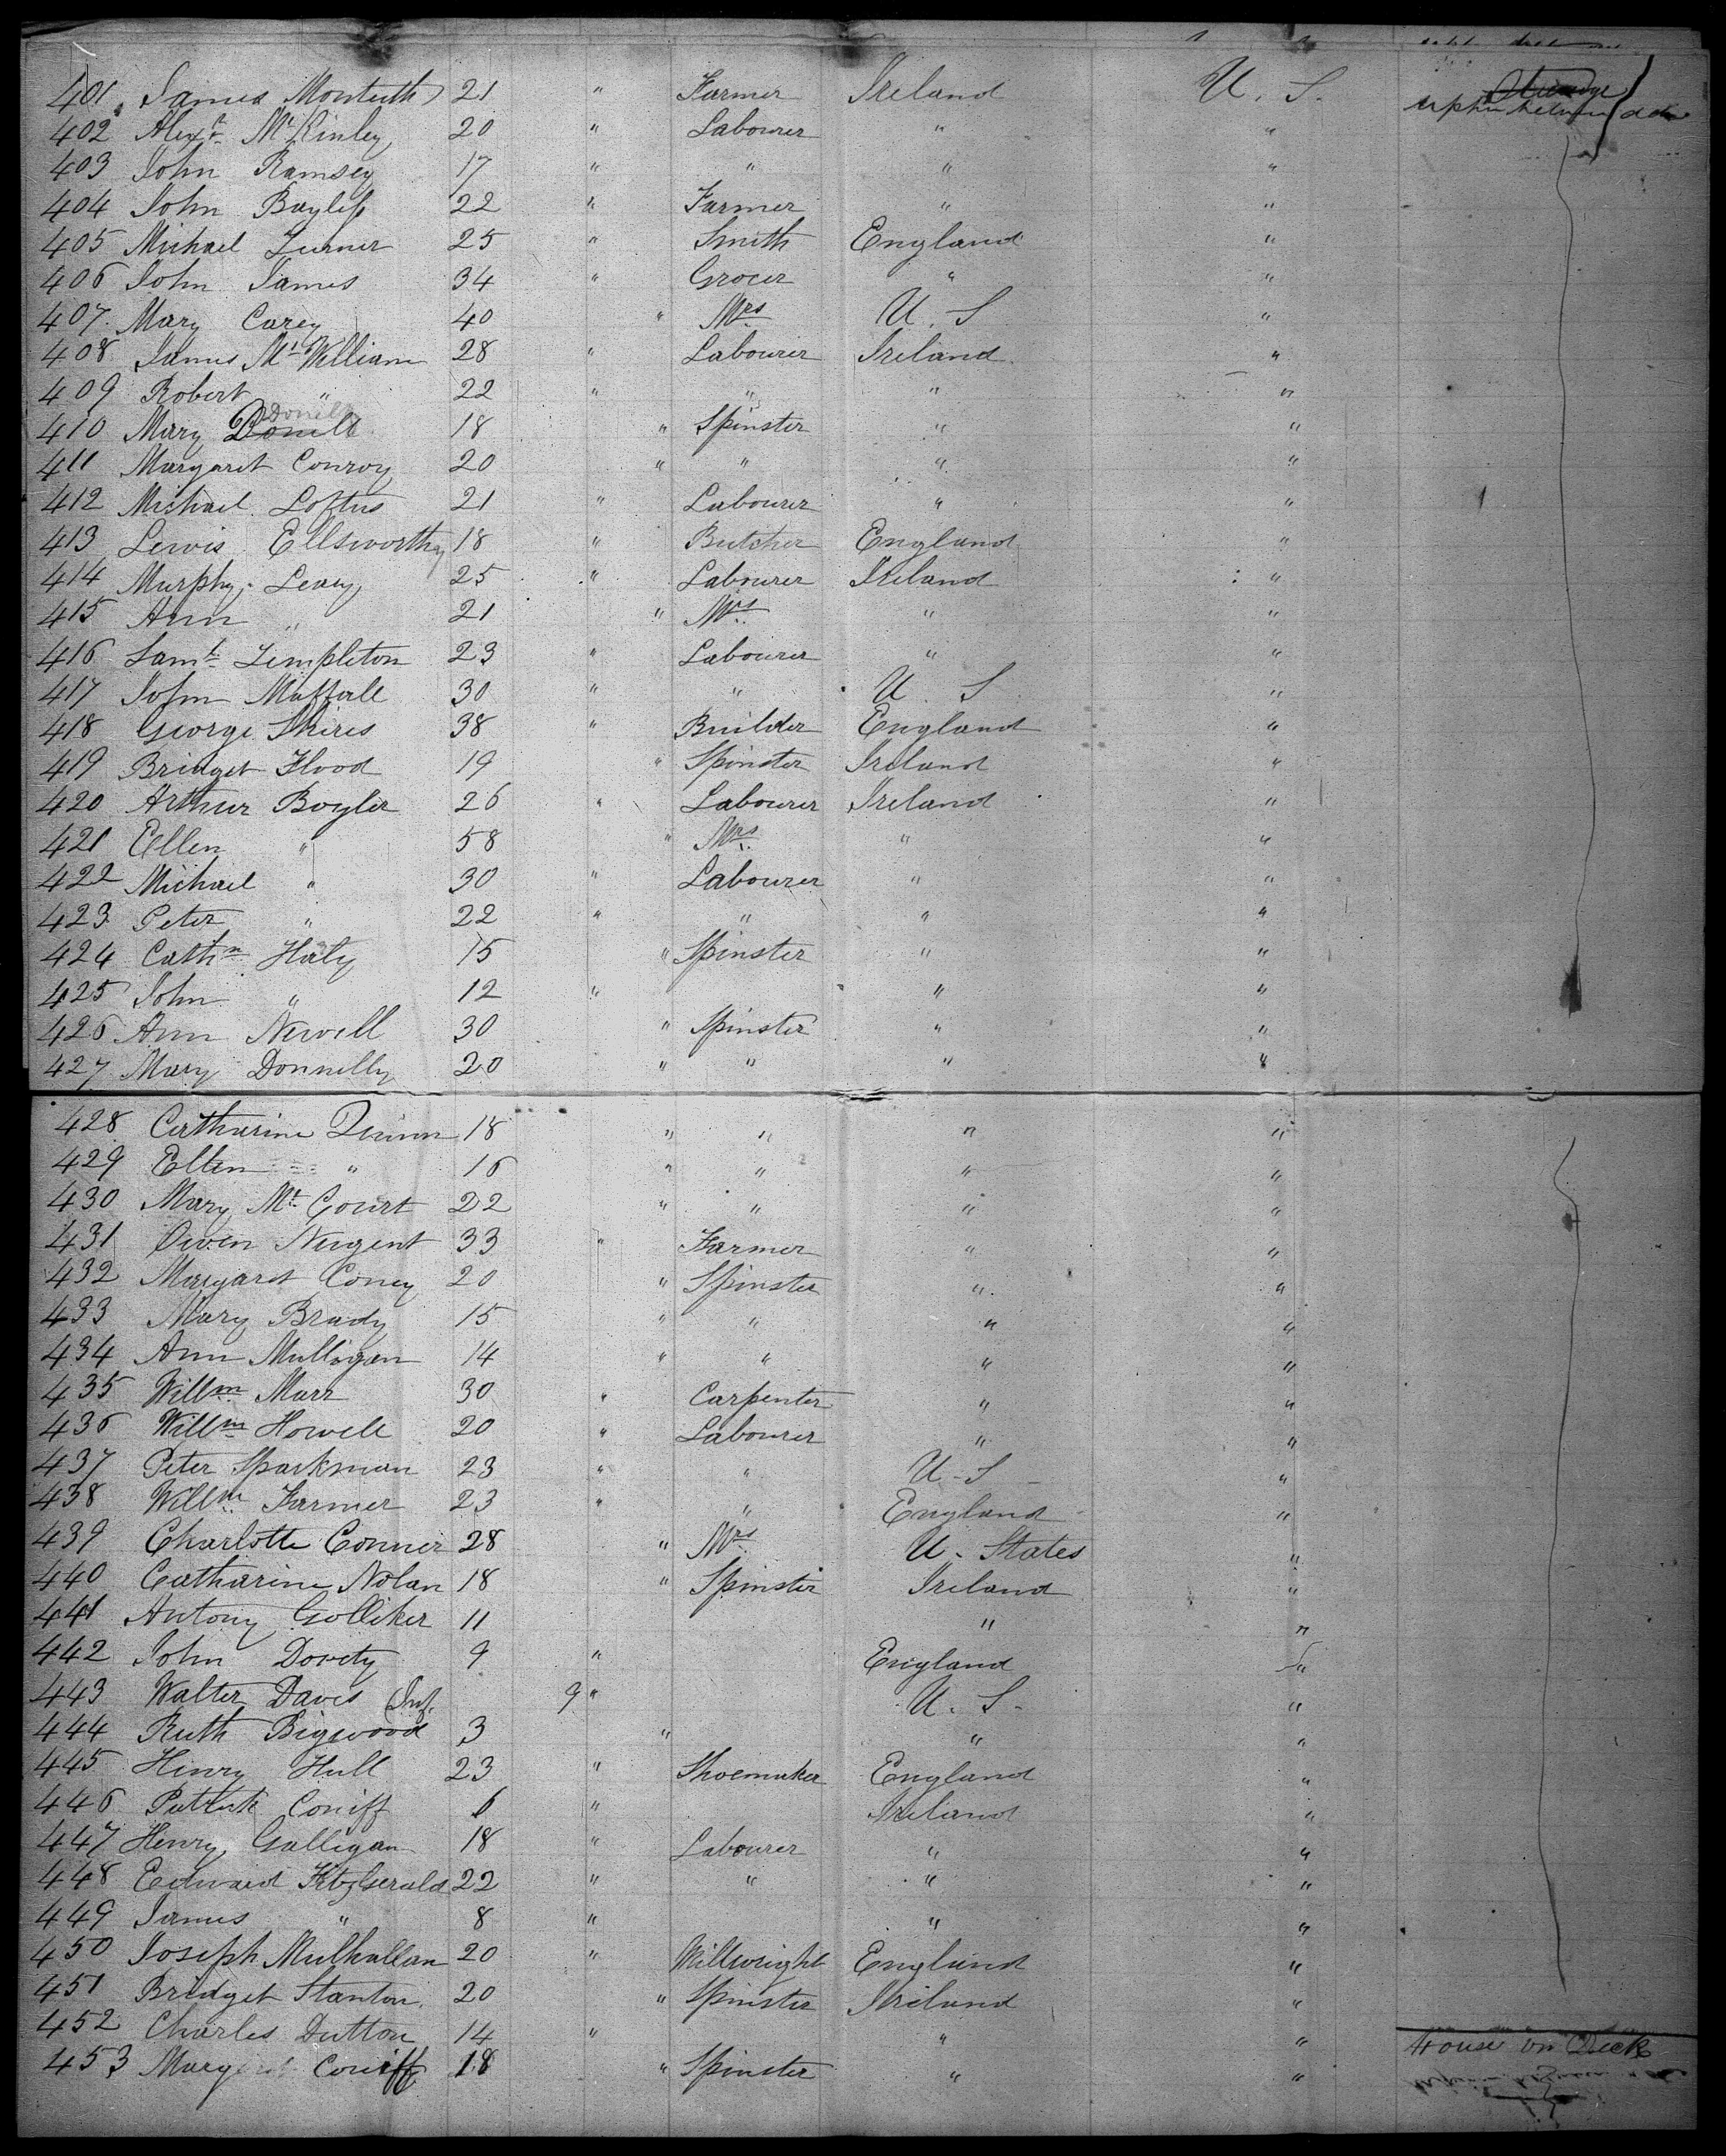 401 James Monteith 21 " Farmer Ireland U. S.
402 Alexr McKinley 20 " Labourer " "
403 John Ramsey 17 " " " "
404 John Bayliss 22 " Farmer " "
405 Michael Turner 25 " Smith England "
406 John James 34 " Grocer " "
407 Mary Carey 40 " Mrs U. S "
408 James McWilliam 28 " Labourer Ireland "
409 Robert " 22 " " " "
410 Mary Donell 18 " Spinster " "
411 Margaret Conroy 20 " " " "
412 Michael Loftus 21 " Labourer " "
413 Lewis Ellsworthy 18 " Butcher England "
414 Murphy Leary 25 " Labourer Ireland "
415 Ann " 21 " Mrs " "
416 Saml Templeton 23 " Labourer " "
417 John 30 " " U. S "
418 George Shires 38 " Builder England "
419 Bridget Flood 19 " Spinster Ireland "
420 Arthur Boyler 26 " Labourer Ireland "
421 Ellen " 58 " Mrs " "
422 Michael " 30 " Labourer " "
423 Peter " 22 " " " "
424 Cathn Haly 15 " Spinster " "
425 John " 12 " " "
426 Ann Newell 30 " Spinster " "
427 Mary Donnelly 20 " " " "
428 Catharine Quinn 18 " " " "
429 Ellen " 16 " " " "
430 Mary McCourt 22 " " " "
431 Owen Nugent 33 " Farmer " "
432 Margaret Coney 20 " Spinster " "
433 Mary Brady 15 " " " "
434 Ann Mulligan 14 " " " "
435 Willm Marr 30 " Carpenter " "
436 Willm Howell 20 " Labourer " "
437 Peter Sparkman 23 " " U - S - "
438 Willm Farmer 23 " " England "
439 Charlotte Conner 28 " Mrs U. States "
440 Catharine Nolan 18 " Spinster Ireland "
441 Antony Golliker 11 " "
442 John Dovety 9 " England "
443 Walter Daves Inf. 9 " U. S - "
444 Ruth Bigwood 3 " " "
445 Henry Hull 23 " Shoemaker England "
446 Patrick Coniff 6 " Ireland "
447 Henry Galligan 18 " Labourer " "
448 Edward FitzGerald 22 " " " "
449 James " 8 " " "
450 Joseph Mulhallan 20 " Millwright England "
451 Bridget Stanton 20 " Spinster Ireland "
452 Charles Dutton 14 " " " House on Deck
453 Margaret Coniff 18 " Spinster " "